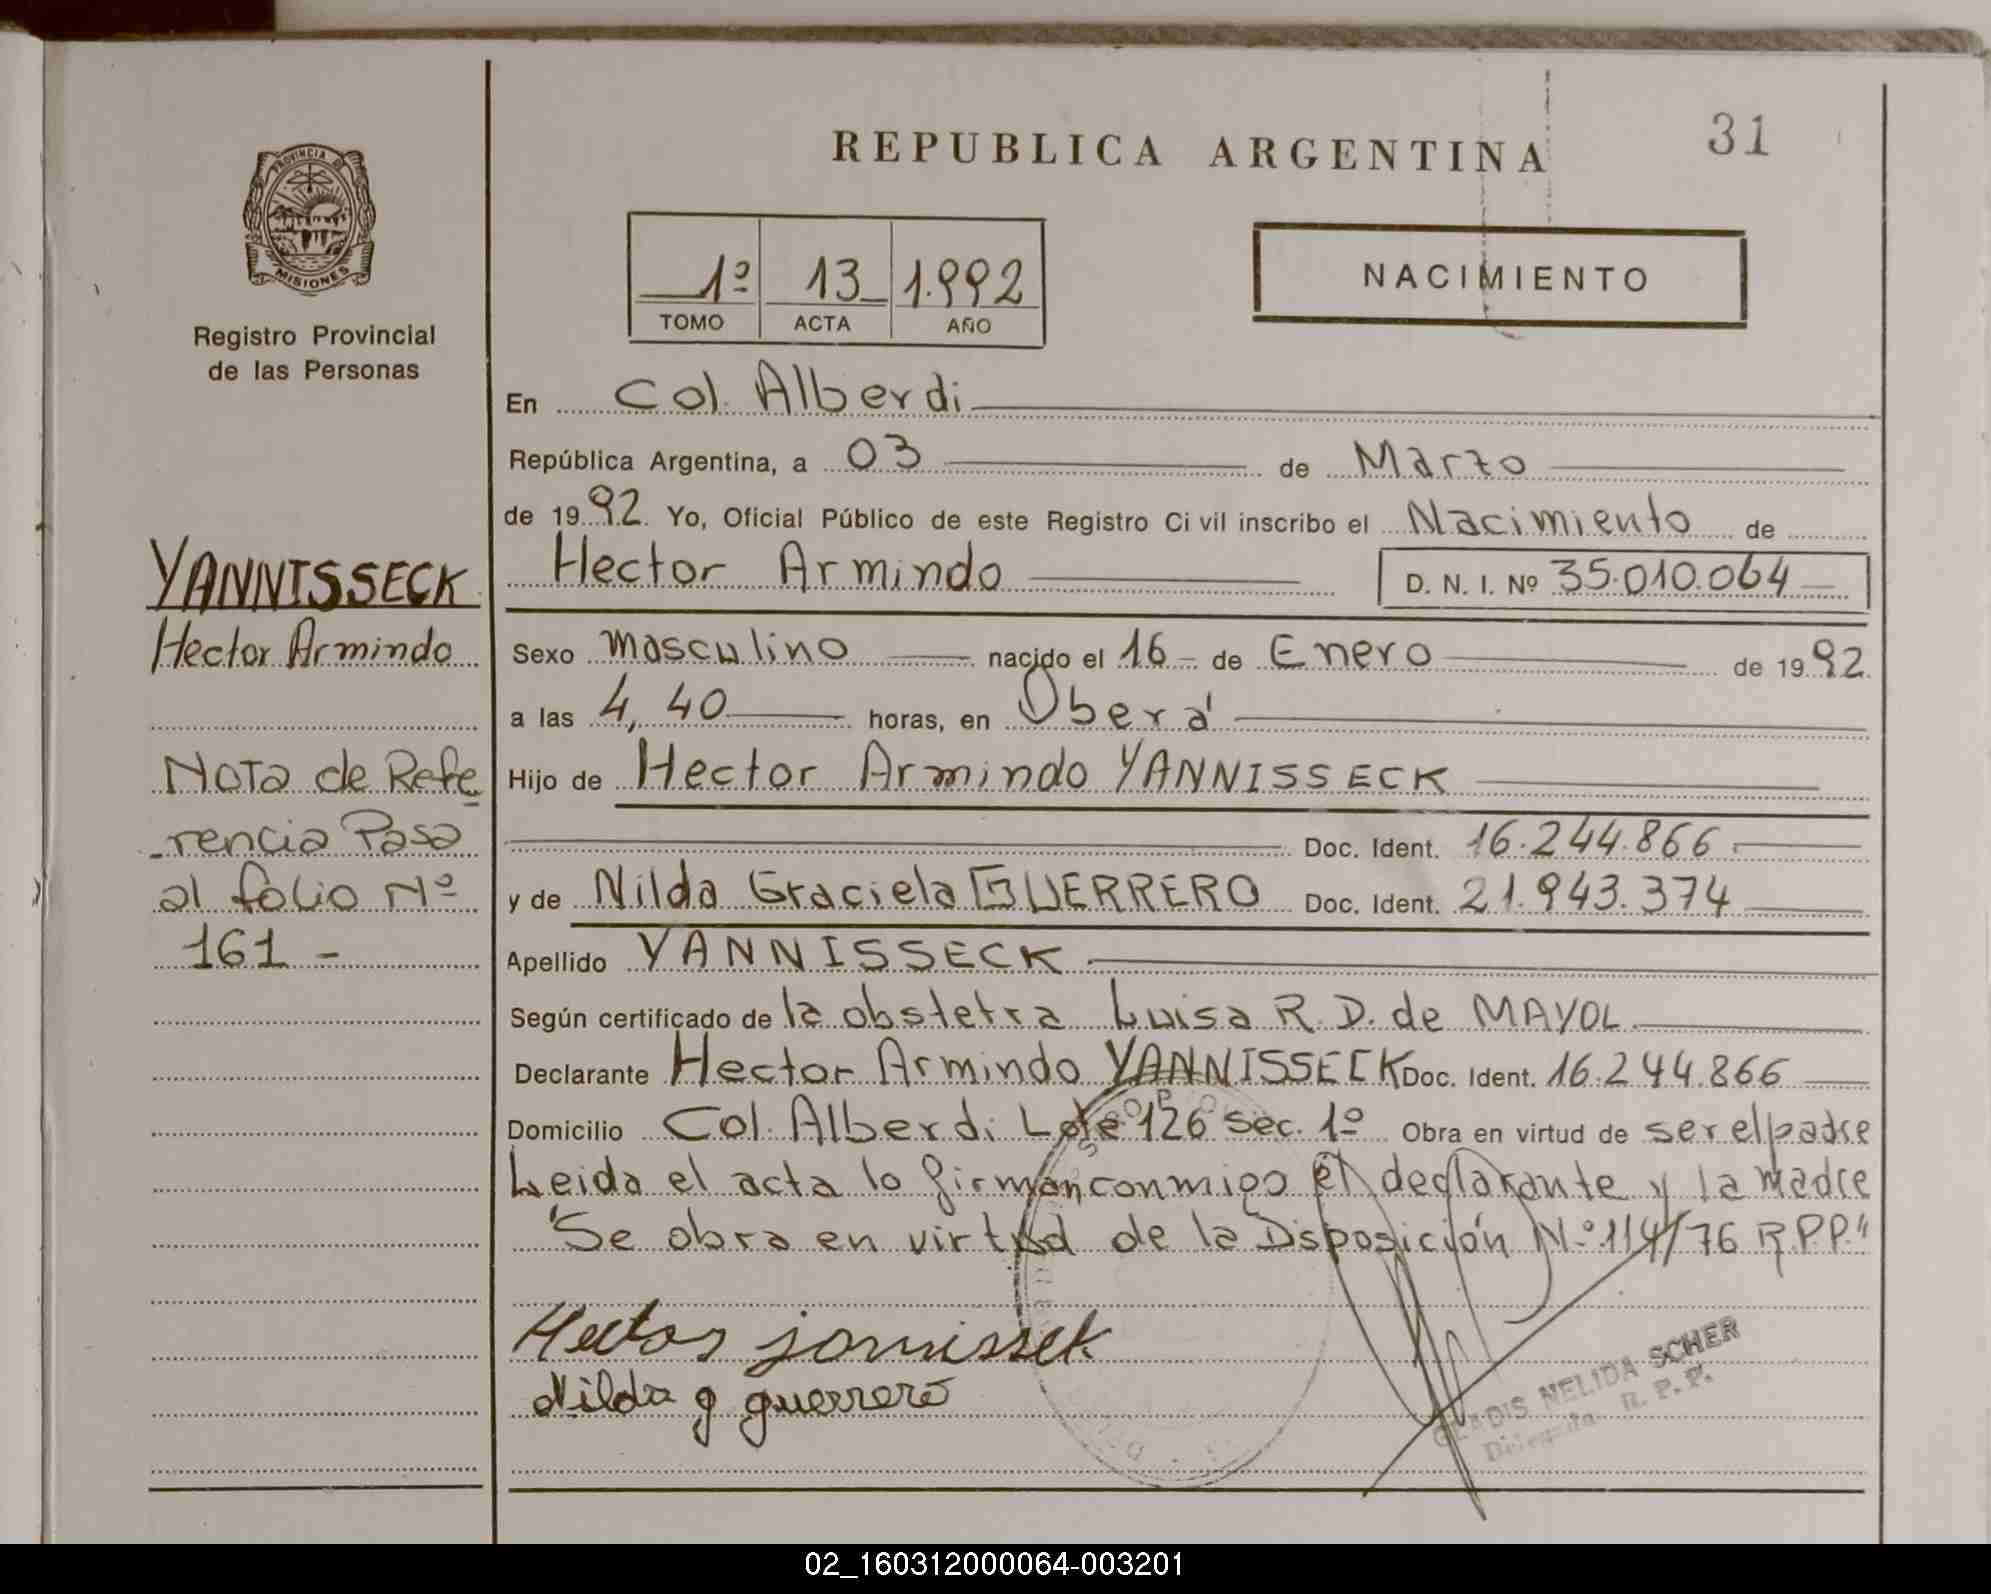 REPUBLICA ARGENTINA
31
PROVINCIA DE
MISIONES
Registro Provincial
de las Personas
1º 13 1.992
TOMO ACTA AÑO
NACIMIENTO
En Col. Alberdi
República Argentina, a 03 de Marzo
de 1992. Yo, Oficial Público de este Registro Ci vil inscribo el Nacimiento de
Hector Armindo D. N. I. Nº 35.010.064
Sexo masculino nacido el 16 de Enero de 1992
a las 4,40 horas, en Oberá
Hijo de Hector Armindo YANNISSECK
Doc. Ident. 16.244.866
y de Nilda Graciela GUERRERO Doc. Ident. 21.943.374
Apellido YANNISSECK
Según certificado de la obstetra Luisa R. D. de MAYOL
Declarante Hector Armindo YANNISSECK Doc. Ident. 16.244.866
Domicilio Col. Alberdi Lote 126 sec. 1º Obra en virtud de ser el padre
Leida el acta lo firman conmigo el declarante y la madre
"Se obra en virtud de la Disposición Nº 114/76 R.P.P."
Hector jannissek
Nilda g guerrero
GLADIS NELIDA SCHER
Delegada R. P. P.
YANNISSECK
Hector Armindo
Nota de Refe
rencia Pasa
al folio Nº
161 -
02_160312000064-003201